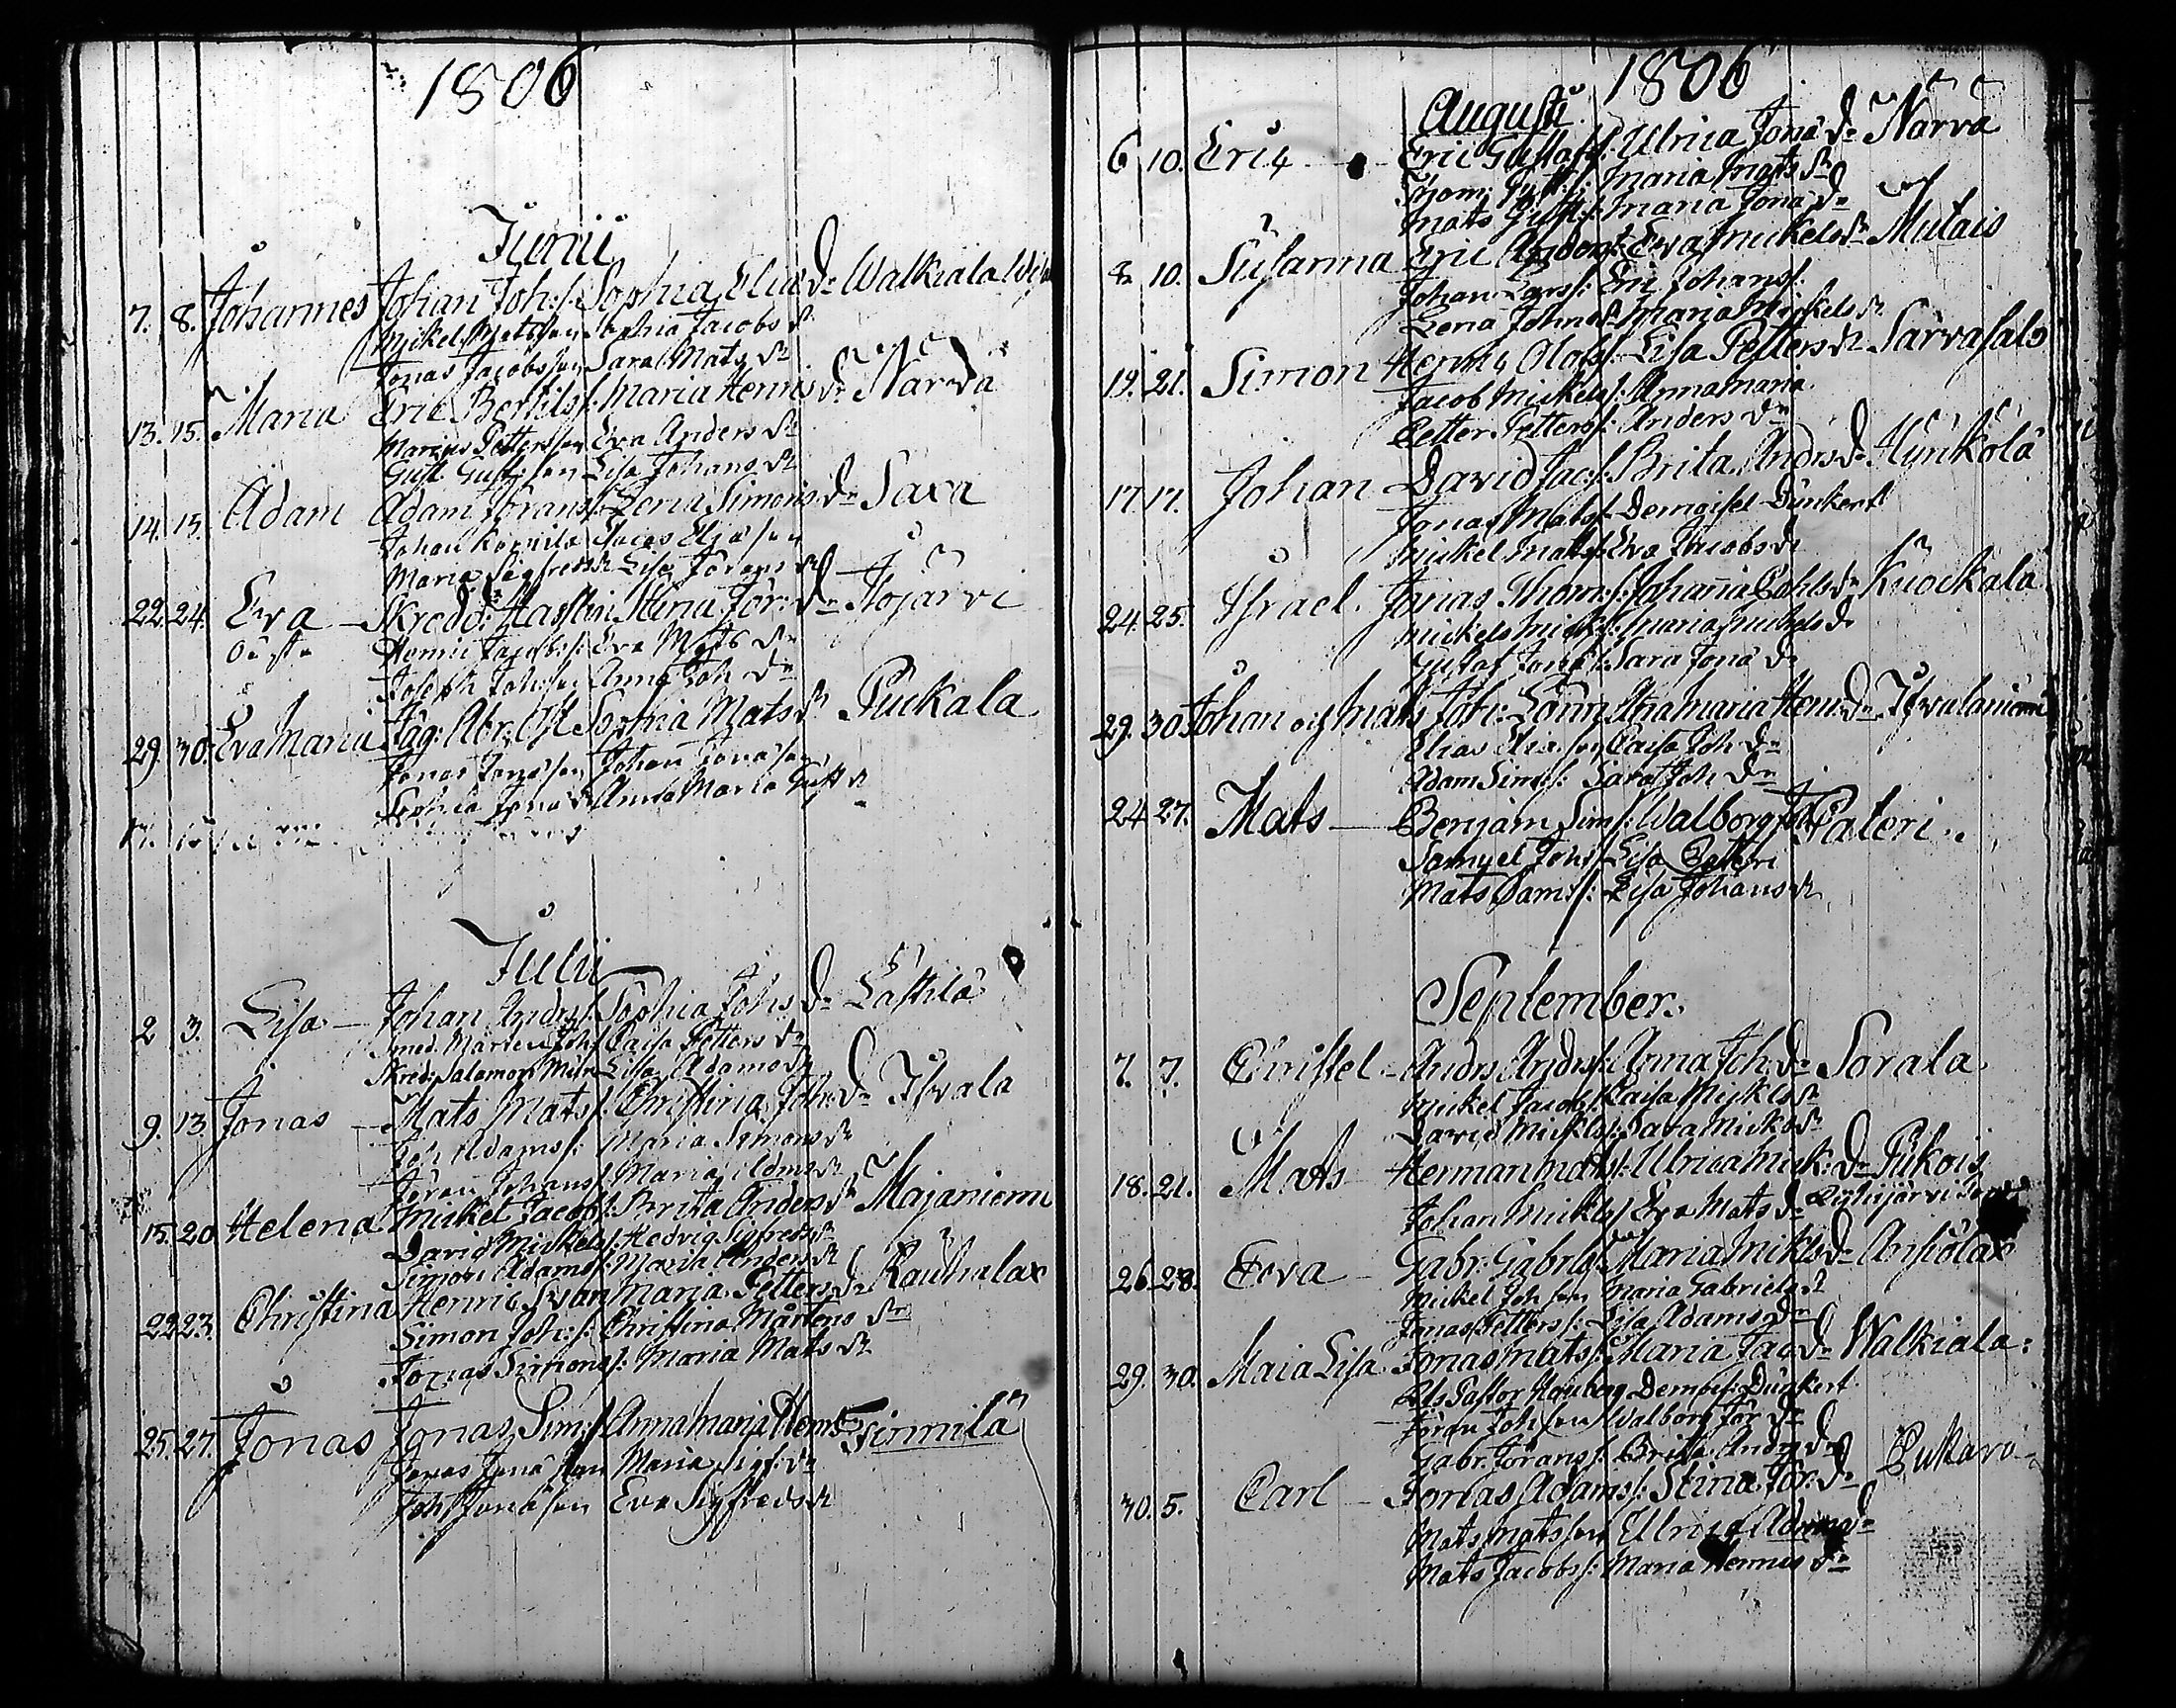 1806
Junii
7. 8. Johannes Johan Joh:s: Sophia Eliæ Dr Walkiala
Mickel Matssen Sophia Jacobs Dr
Jonas Jacobssen Sara Mats Dr
13. 15. Maria Eric Bertils: Maria Henris Dr Närvä
Marcus Petterssen Eva Anders Dr
Gust. Gust:sen Lisa Johans Dr
14. 15. Adam Adam Görans: Lena Simons Dr Saxa
Johan Jacob Eliæsen
Maria Sigfreds Dr Lisa Görans Dr
22. 24. Eva Skredd: Stina Jör: Dr Töjärvi
Henric Jacobs: Eva Mats Dr
Joseph Joh:sen Anna Joh Dr
29. 30. Eva Maria Jäg: Abr: Sophia Mats Dr Puckala
Jonas Jonæsen Johan Jonæsen
Sophia Jonæ Dr Anna Maria Gust Dr
Julii
2 3. Lisa Johan Andrs: Sophia Johs Dr Lästilä
Smed. Mårten Joh: Caisa Petters Dr
Skred: Salomon Lisa Adams Dr
9. 13. Jonas Mats Mats: Christina Joh: Dr Ihvala
Joh Adams: Maria Simons Dr
Göran Johans: Maria Adms Dr
15. 20. Helena Mickel Jacobs: Brita Anders Dr Majaniemi
David Mickels: Hedvig Sigfreds Dr
Simon Adams: Maria Anders Dr
22. 23. Christina Henric Svan Maria Petters Dr Rauhalax
Simon Joh:s: Christina Mårtens Dr
Jonas Simons: Maria Mats Dr
25. 27. Jonas Jonas Sim:s: Anna Maria Hens Dr Finnilä
Jonas Jonæsen Maria Sigf: Dr
Joh Jonæsen Eva Sigfreds Dr
1806
Augusti
6 10. Eric Eric Gustafs: Ulrica Jonæ Dr Närvä
Thom: Gust:s: Maria Mats Dr
Mats Gust:s: Maria Jonæ Dr
8 10. Susanna Eric Anders: Eva Mickels Dr Mutais
Johan Lars: Eric Johans:
Lena Johns Dr Maria Mickels Dr
19. 21. Simon Henric Olofs: Lisa Petters Dr Sarvasalo
Jacob Mickels: Anna Maria
Petter Petters: Anders Dr
17 17. Johan David Jac:s: Brita Andrs Dr Hünkölä
Jonas Mats: Demoisel Dunkert
Mickel Mats: Eva Jacobs Dr
24. 25. Israel Jonas Thom:s: Johanna Pohls Dr Kuockala
Mickels Mick:s: Maria Mickels Dr
Gustaf Jonæ: Sara Jonæ Dr
29. 30 Johan och Mats Joh: Lönn Anna Maria Hen: Dr Ihvalaniemi
Elias Eliæsen Caisa Joh Dr
Adam Sims: Sara Joh Dr
24 27. Mats Benjam Sim:s: Walborg Joh Pateri
Samuel Johs: Lisa Petteri
Mats Sams: Lisa Johans Dr
September.
7. 7. Christel Andrs Andrs: Anna Joh: Dr Sorala
Mickel Jacobs: Caisa Mickls Dr
David Mickls: Sara Micks Dr
18. 21. Mats Herman Mats: Ulrica Mick: Dr Pukois
Johan Mickls: Eva Mats Dr
26 28. Eva Gabr. Gabrls: Maria Mikls Dr Ansiölax
Mickel Johsen Maria Gabriels Dr
Jonas Petters: Lisa Adams Dr
29. 30. Maia Lisa Jonas Mats: Maria Jac Dr Walkiala:
Demois: Dunkert
Göran Johsen Walborg Jör Dr
Gabr. Görans: Britta Andrs Dr
30. 5. Carl Jonas Adams: Stina Jör: Dr Pukaro
Mats Matssen Ulrica Adams Dr
Mats Jacobs: Maria Hennes Dr